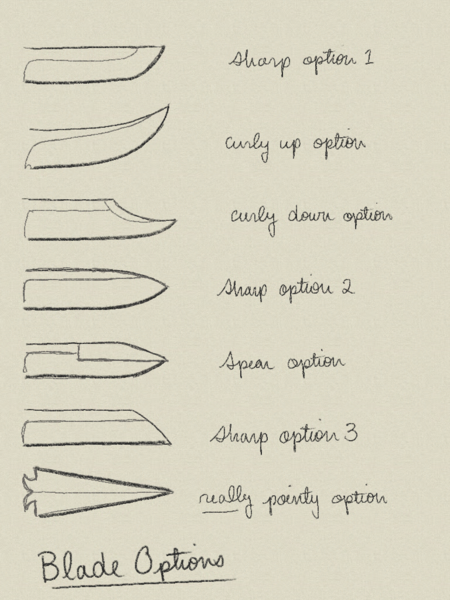 Sharp option 1
curly up option
curly down option
Sharp option 2
Spear option
Sharp option 3
really pointy option
Blade Options